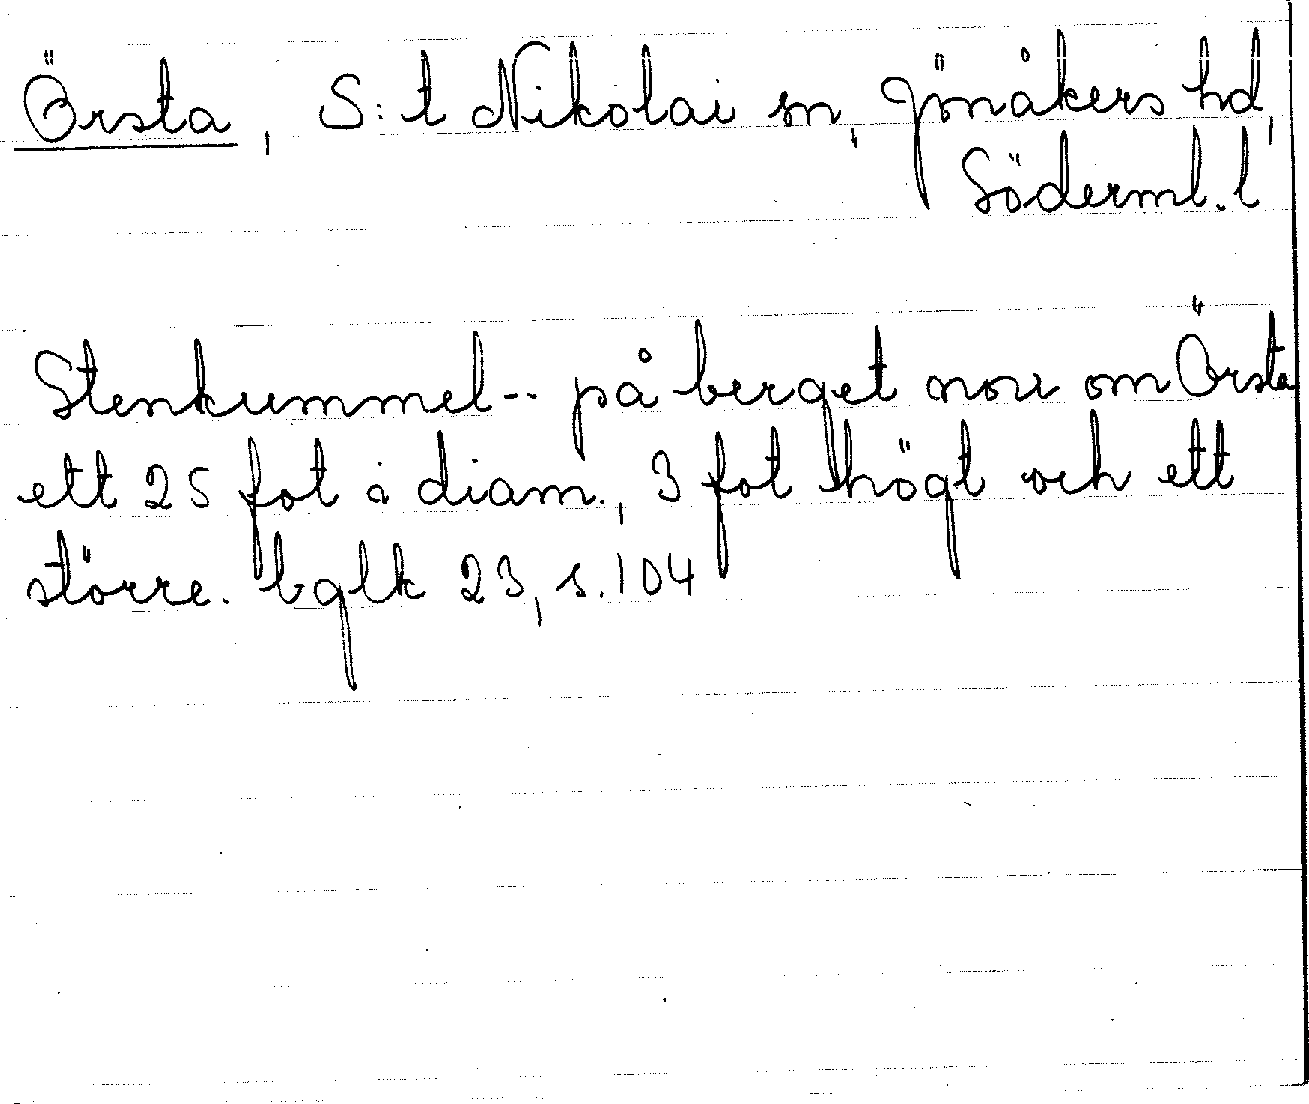 Örsta, S:t Nikolai sn, Jönåkers hd,
Söderml. l
Stenkummel-- på berget norr om Örsta
ett 25 fot i diam., 3 fot högt och ett
större. bglk 23, s. 104